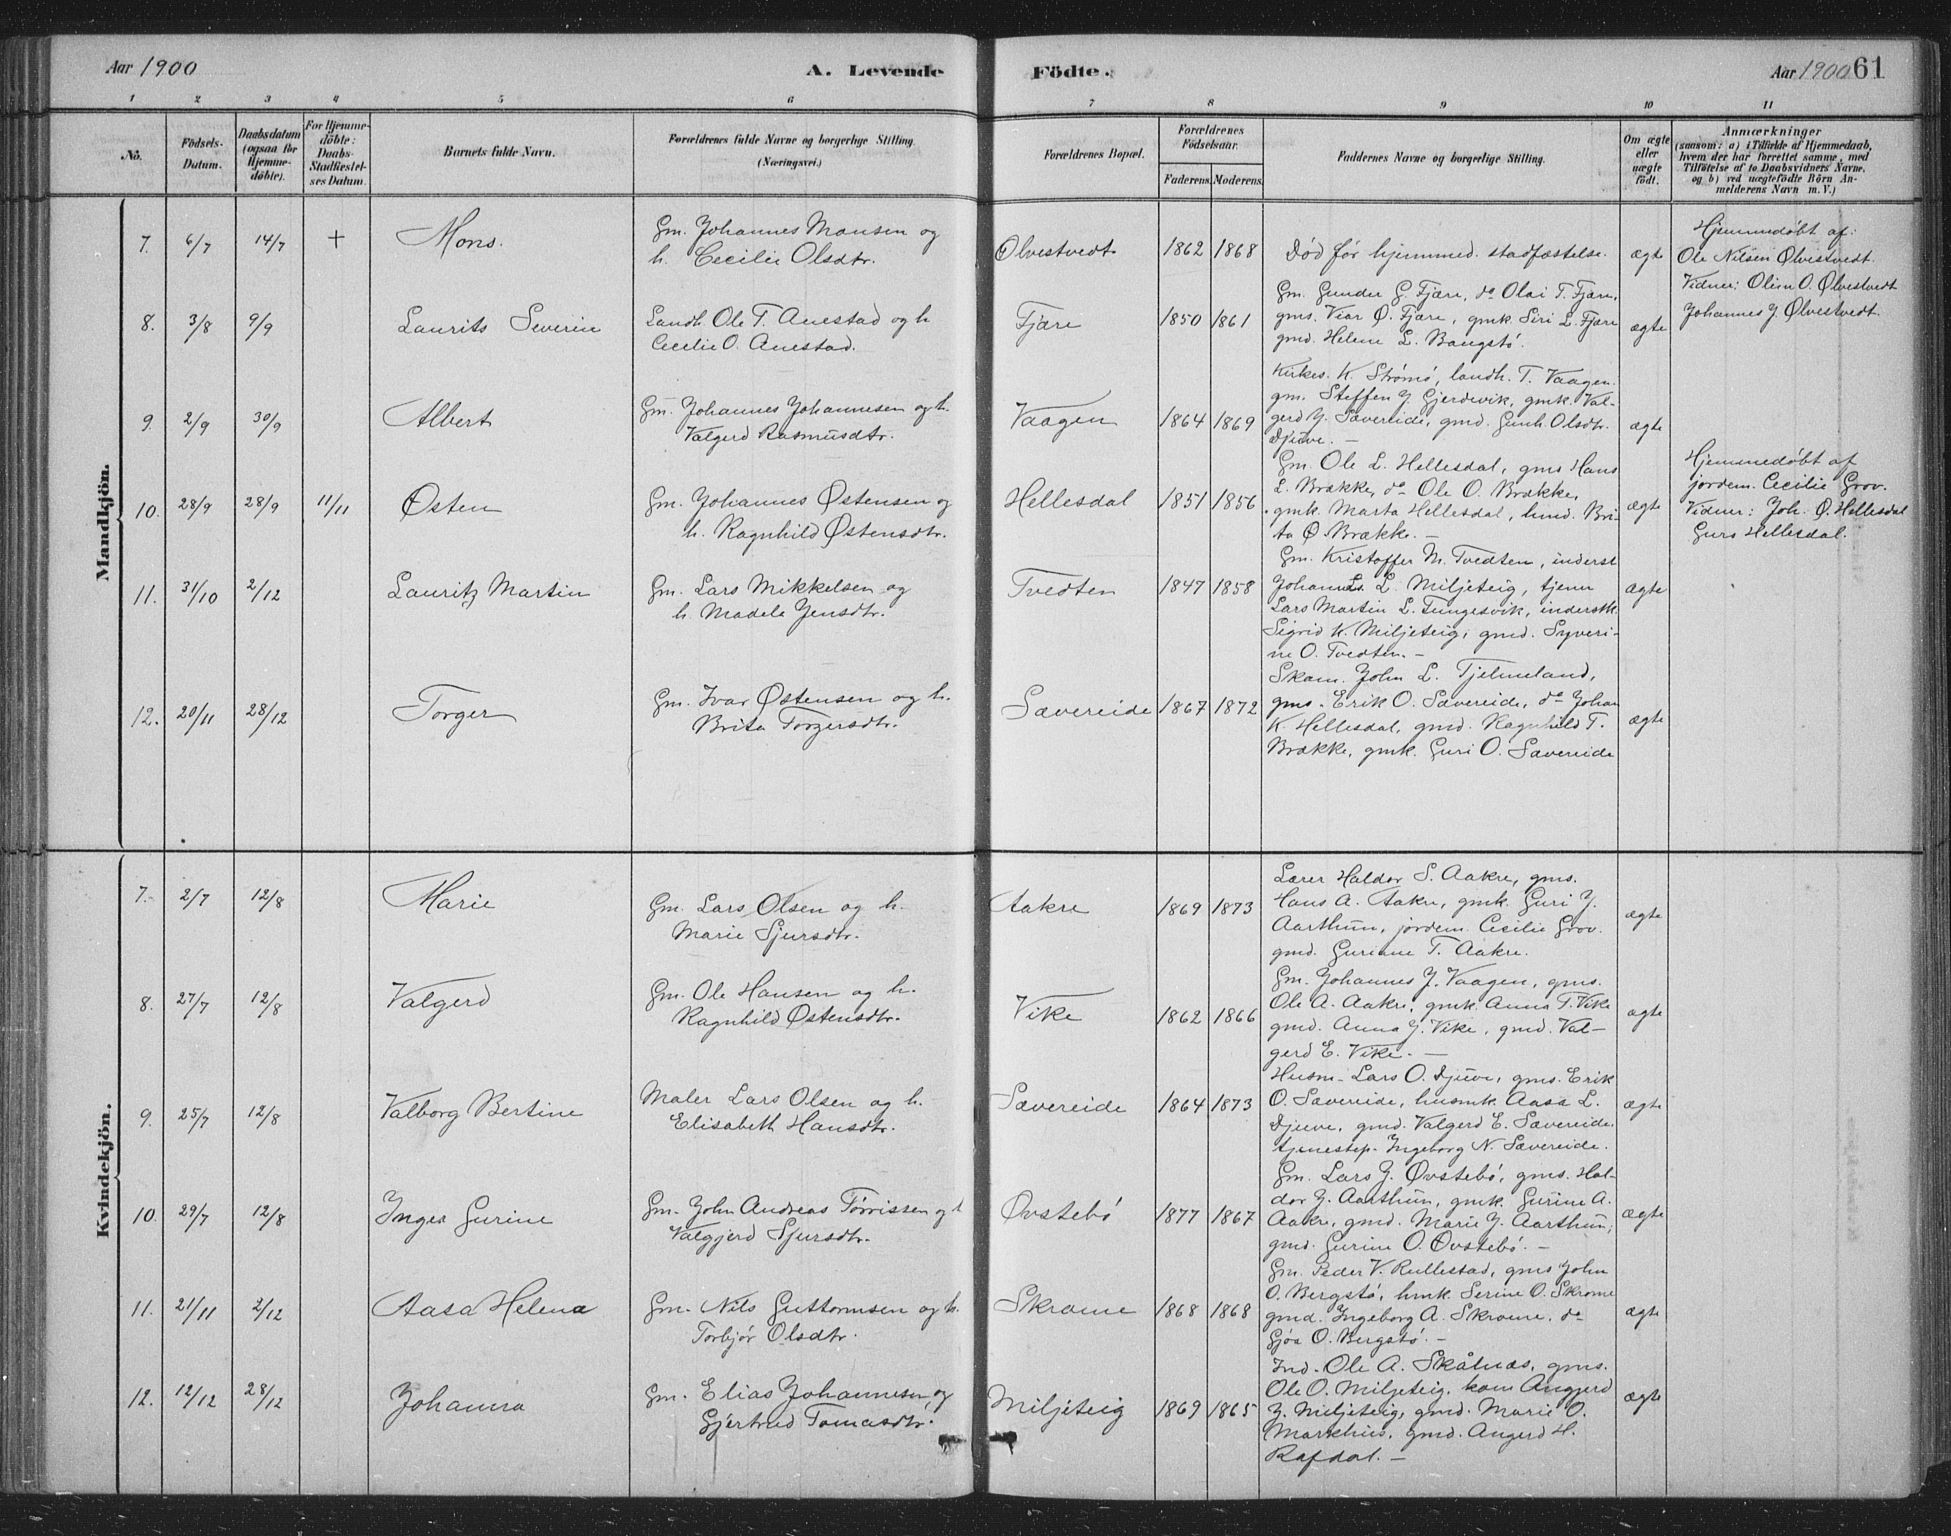 Aar 1900
A. Levende
Födte.
Aar 1900 61
1 2 3 4 5 6 7 8 9 10 11
No.
Födsels-Datum.
Daabsdatum (ogsaa for Hjemme-döbte).
For Hjemme-döbte: Daabs-Stadfæstel-ses Datum.
Barnets fulde Navn.
Forældrenes fulde Navne og borgerlige Stilling. (Næringsvei.)
Forældrenes Bopæl.
Forældrenes Födselsaar.
Faderens. Moderens.
Faddernes Navne og borgerlige Stilling.
Om ægte eller uægte födt.
Anmærkninger
(saasom: a) i Tilfælde af Hjemmedaab, hvem der har forrettet samme, med Tilföielse af to Daabsvidners Navne, og b) ved uægtefödte Börn An-melderens Navn m. V.)
Mandkjön.
7. 6/7 14/7 + Mons.
Gm. Johannes Monsen og
h. Cecilie Olsdtr.
Ølvestvedt 1862 1868
Død før hjemmed. stadfæstelse.
ægte
Hjemmedøbt af:
Ole Nilsen Ølvestvedt.
Vidner: Olien O. Ølvestvedt
Johannes J. Ølvestvedt.
8. 3/8 9/9 Laurits Severin
Landh. Ole T. Anestad og h
Cecilie O. Anestad.
Fjære 1850 1861
Gm. Gunder G. Fjære, do Olai T. Fjære,
gms. Vear Ø. Fjære, gmk. Siri L. Fjære
gmd. Helene L. Bangstø.
ægte
9. 2/9 30/9 Albert
Gm. Johannes Johannesen og h.
Valgerd Rasmusdtr.
Vaagen 1864 1869
Kirkes. K. Strømø, landh. T. Vaagen.
gm. Steffen J. Gjerdevik, gmk. Val-
gerd J. Sævereide, gmd. Gunh. Olsdtr.
Djuve. —
ægte
10. 28/9 28/9 11/11 Østen
Gm. Johannes Østensen og
h. Ragnhild Østensdtr.
Hellesdal 1851 1856
Gm. Ole L. Hellesdal, gms Hans
L. Brække, do Ole O. Brække,
gmk. Marta Hellesdal, hmd. Bri-
ta Ø. Brække. —
ægte
Hjemmedøbt af
jordem. Cecilie Grov.
Vidner: Joh. Ø. Hellesdal
Guro Hellesdal.
11. 31/10 2/12 Lauritz Martin
Gm. Lars Mikkelsen og
h. Madela Jensdtr.
Tvedten 1847 1858
Gm. Kristoffer M. Tvedten, inderst
Johannes L. Miljeteig, tjener
Lars Martin L. Tungesvik, inderstk.
Sigrid K. Miljeteig, gmd. Syveri-
ne O. Tvedten. —
ægte
12. 20/11 28/12 Torger
Gm. Ivar Østensen og h.
Brita Torgersdtr.
Sævereide 1867 1872
Skom. John L. Tjelmeland,
gms. Erik O. Sævereide, do Johan
K. Hellesdal, gmd. Ragnhild T.
Brække, gmk. Guri O. Sævereide
ægte
Kvindekjön.
7. 2/7 12/8 Marie
Gm. Lars Olsen og h.
Marie Sjursdtr.
Aakre 1869 1873
Lærer Haldor S. Aakre, gms.
Hans A. Aakre, gmk. Guri J.
Aarthun, jordem. Cecilie Grov.
gmd. Gurine T. Aakre.
ægte
8. 27/7 12/8 Valgerd
Gm. Ole Hansen og h.
Ragnhild Østensdtr.
Vike 1862 1866
Gm. Johannes J. Vaagen, gms.
Ole A. Aakre, gmk. Anna T. Vike
gmd. Anna J. Vike, gmd. Val-
gerd E. Vike. —
ægte
9. 25/7 12/8 Valborg Bertine
Maler Lars Olsen og h.
Elisabeth Hansdtr.
Sævereide 1864 1873
Husm. Lars O. Djuve, gms. Erik
O. Sævereide, husmk. Aasa L.
Djuve, gmd. Valgerd E. Sævereide.
tjenestep. Ingeborg N. Sævereide.
ægte
10. 29/7 12/8 Inger Gurine
Gm. John Andreas Tørrissen og
Valgjerd Sjursdtr.
Øvstebø 1877 1867
Gm. Lars J. Øvstebø, gms. Hal-
dor J. Aarthun, gmk. Gurine A.
Aakre, gmd. Marie J. Aarthun,
gmd. Gurine O. Øvstebø. —
ægte
11. 21/11 2/12 Aasa Helena
Gm. Nils Guttormsen og h.
Torbjør Olsdtr.
Skrome 1868 1868
Gm. Peder V. Rullestad, gms John
O. Bergstø, hmk. Serine O. Skrome
gmd. Ingeborg A. Skrome, do
Gjøa O. Bergstø. —
ægte
12. 12/12 28/12 Johanna
Gm. Elias Johannesen og
Gjertrud Tomasdtr.
Miljeteig 1869 1865
Ind. Ole A. Skålnæs, gms.
Ole O. Miljeteig, kone Angjerd
J. Miljeteig, gmd. Marie O.
Markhus, gmd. Angerd H.
Rafdal. —
ægte